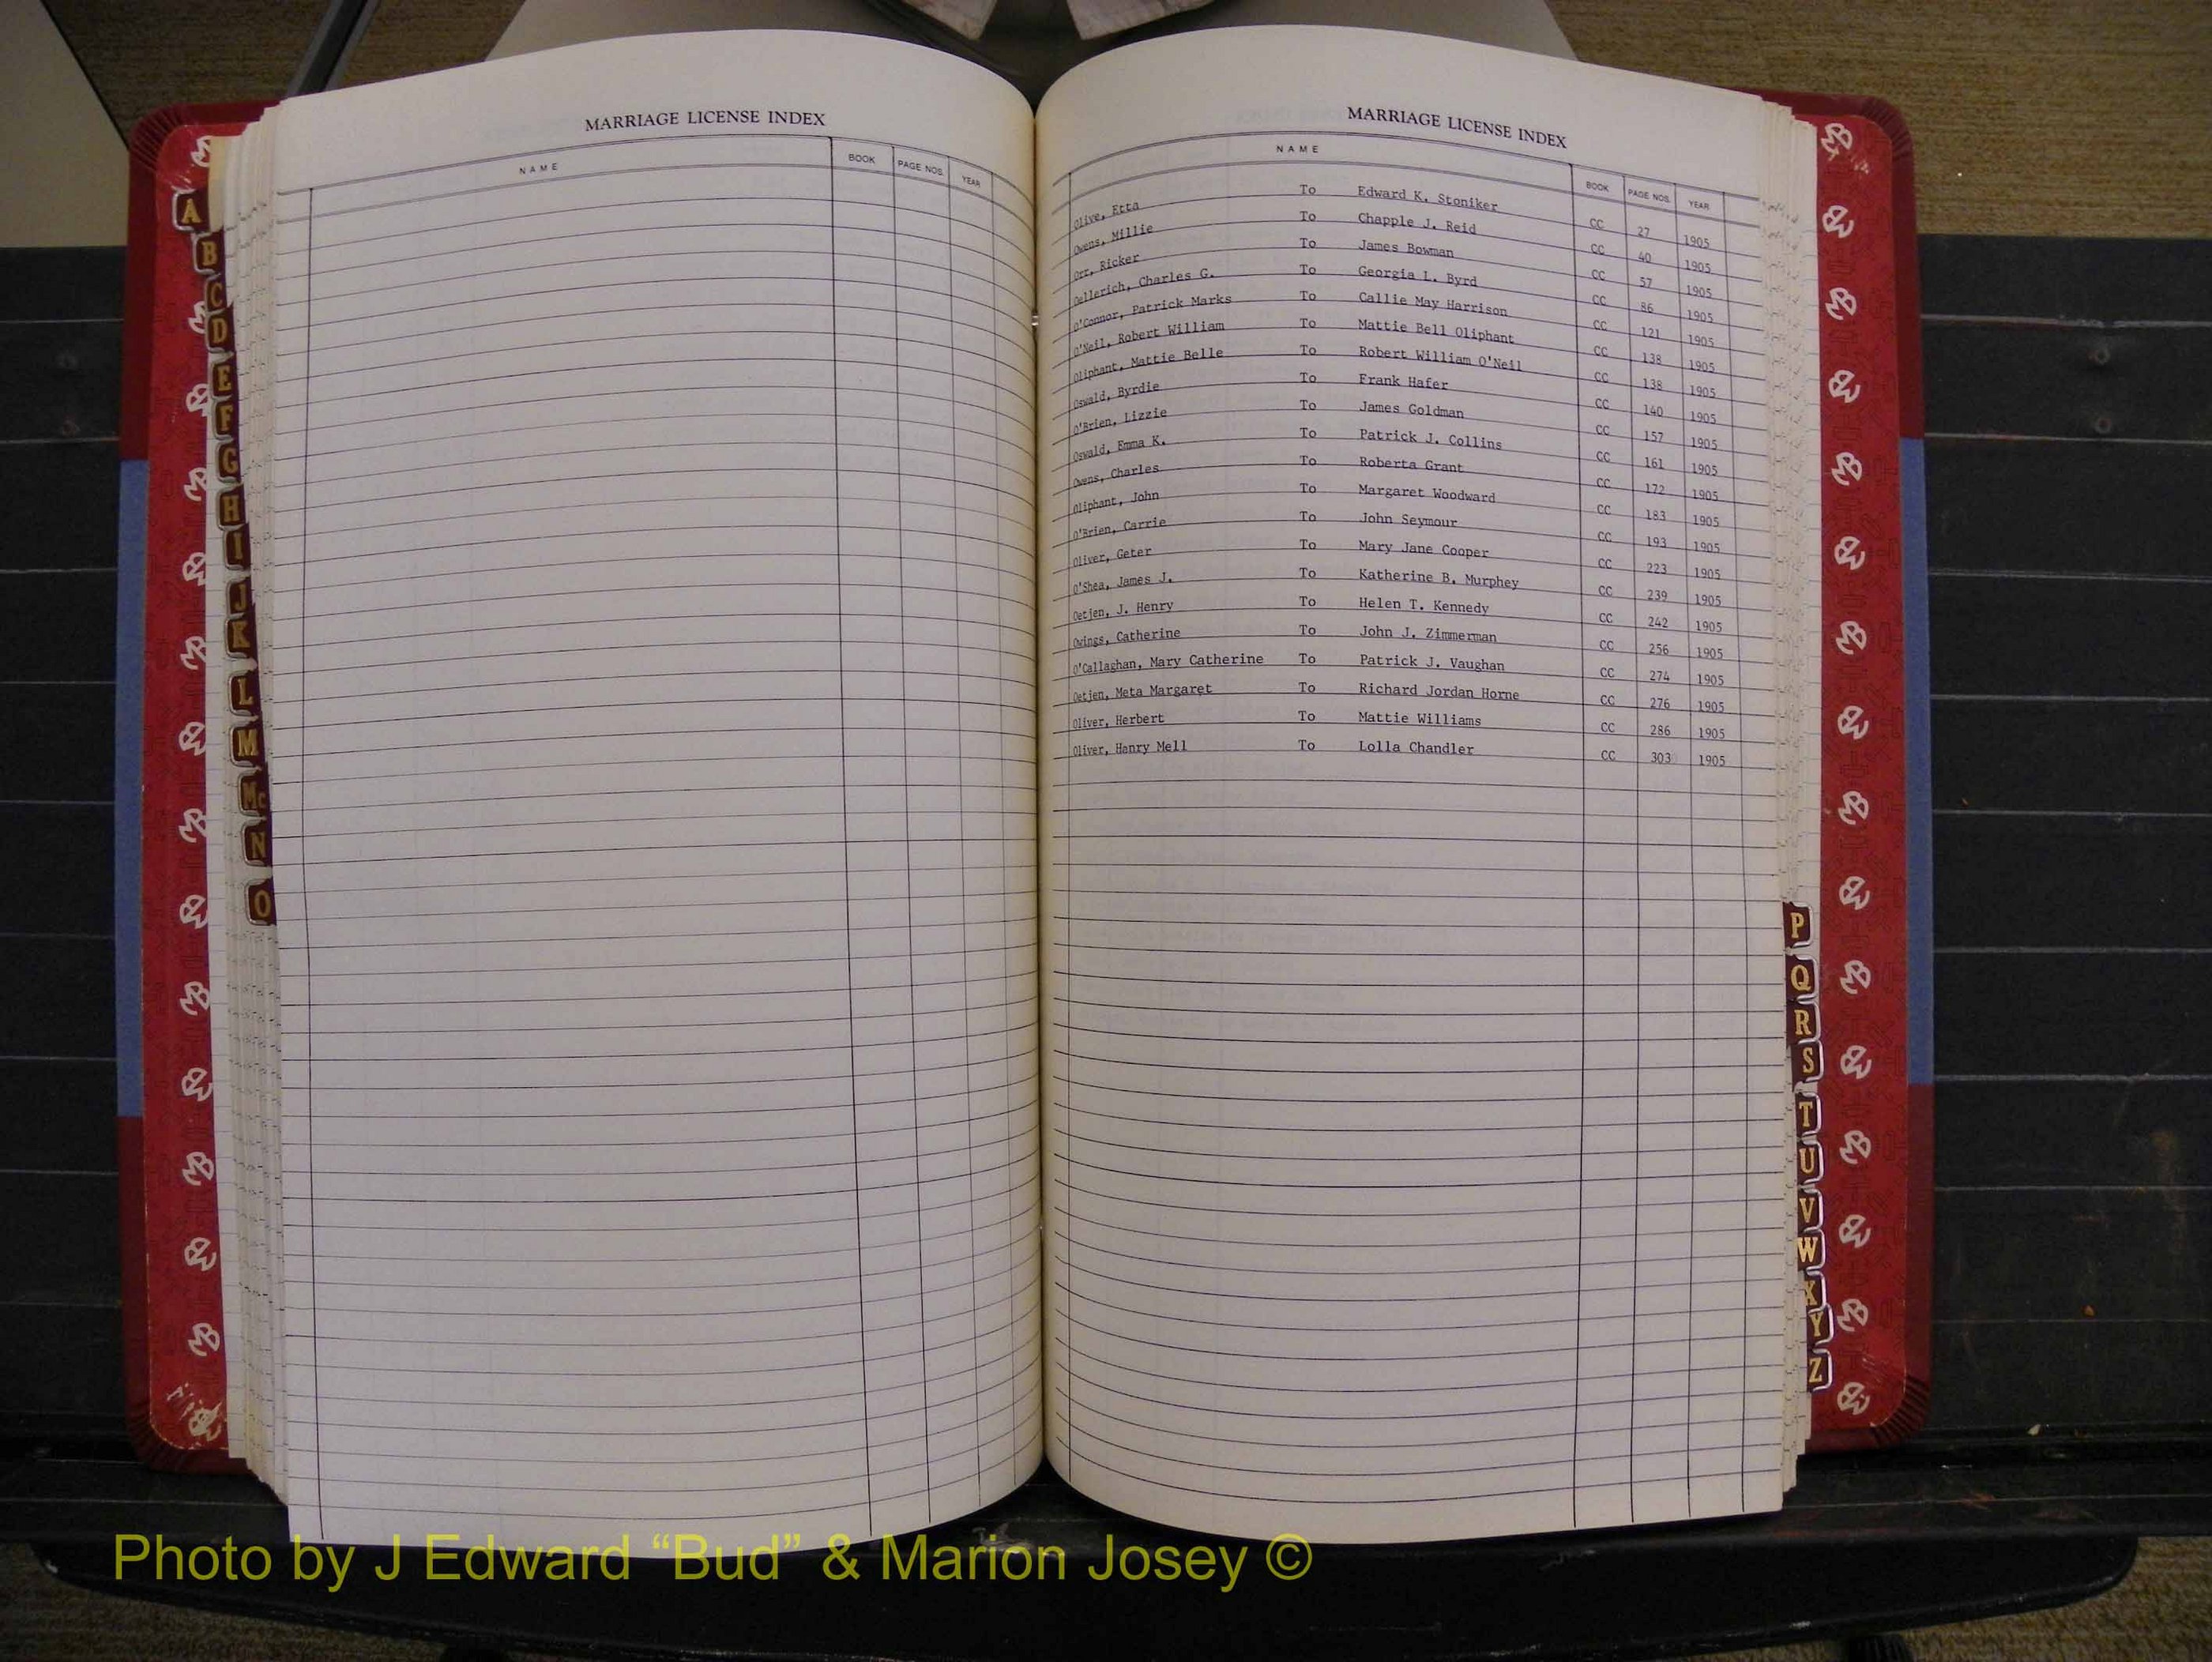 MARRIAGE LICENSE INDEX
NAME BOOK PAGE NOS. YEAR
A
B
C
D
E
F
G
H
I
J
K
L
M
Mc
N
O
MARRIAGE LICENSE INDEX
NAME BOOK PAGE NOS. YEAR
Olive, Etta To Edward K. Stoniker CC 27 1905
Owens, Millie To Chapple J. Reid CC 40 1905
Orr, Ricker To James Bowman CC 57 1905
Oellerich, Charles G. To Georgia L. Byrd CC 86 1905
O'Connor, Patrick Marks To Callie May Harrison CC 121 1905
O'Neil, Robert William To Mattie Bell Oliphant CC 138 1905
Oliphant, Mattie Belle To Robert William O'Neil CC 138 1905
Oswald, Byrdie To Frank Hafer CC 140 1905
O'Brien, Lizzie To James Goldman CC 157 1905
Oswald, Emma K. To Patrick J. Collins CC 161 1905
Owens, Charles To Roberta Grant CC 172 1905
Oliphant, John To Margaret Woodward CC 183 1905
O'Brien, Carrie To John Seymour CC 193 1905
Oliver, Geter To Mary Jane Cooper CC 223 1905
O'Shea, James J. To Katherine B. Murphey CC 239 1905
Oetjen, J. Henry To Helen T. Kennedy CC 242 1905
Owings, Catherine To John J. Zimmerman CC 256 1905
O'Callaghan, Mary Catherine To Patrick J. Vaughan CC 274 1905
Oetjen, Meta Margaret To Richard Jordan Horne CC 276 1905
Oliver, Herbert To Mattie Williams CC 286 1905
Oliver, Henry Mell To Lolla Chandler CC 303 1905
P
Q
R
S
T
U
V
W
X
Y
Z
Photo by J Edward “Bud” & Marion Josey ©